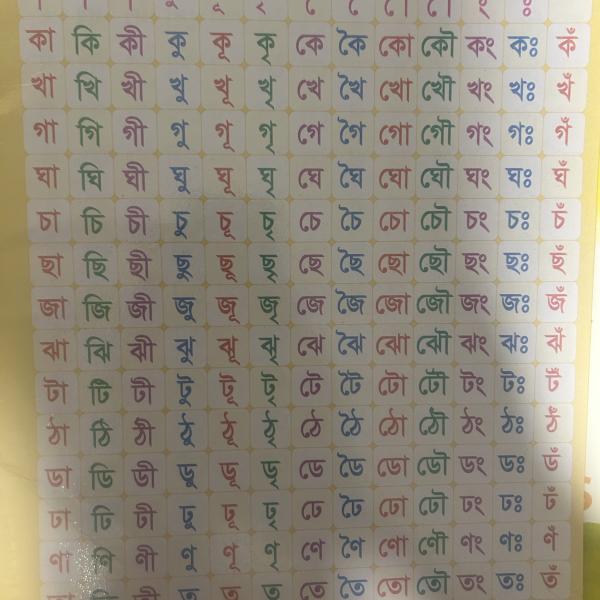 কা কি কী কু কূ কৃ কে কৈ কো কৌ কং কঃ কঁ
খা খি খী খু খূ খৃ খে খৈ খো খৌ খং খঃ খঁ
গা গি গী গু গূ গৃ গে গৈ গো গৌ গং গঃ গঁ
ঘা ঘি ঘী ঘু ঘূ ঘৃ ঘে ঘৈ ঘো ঘৌ ঘং ঘঃ ঘঁ
চা চি চী চু চূ চৃ চে চৈ চো চৌ চং চঃ চঁ
ছা ছি ছী ছু ছূ ছৃ ছে ছৈ ছো ছৌ ছং ছঃ ছঁ
জা জি জী জু জূ জৃ জে জৈ জো জৌ জং জঃ জঁ
ঝা ঝি ঝী ঝু ঝূ ঝৃ ঝে ঝৈ ঝো ঝৌ ঝং ঝঃ ঝঁ
টা টি টী টু টূ টৃ টে টৈ টো টৌ টং টঃ টঁ
ঠা ঠি ঠী ঠু ঠূ ঠৃ ঠে ঠৈ ঠো ঠৌ ঠং ঠঃ ঠঁ
ডা ডি ডী ডু ডূ ডৃ ডে ডৈ ডো ডৌ ডং ডঃ ডঁ
ঢা ঢি ঢী ঢু ঢূ ঢৃ ঢে ঢৈ ঢো ঢৌ ঢং ঢঃ ঢঁ
ণা ণি ণী ণু ণূ ণৃ ণে ণৈ ণো ণৌ ণং ণঃ ণঁ
তে তৈ তো তৌ তং তঃ তঁ